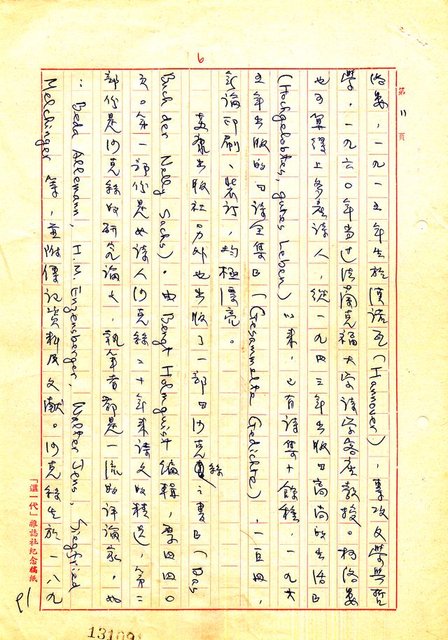 6
第11頁
洛婁,一九一五年生於漢諾瓦(Hannover),專攻文學與哲
學,一九六〇年當過法蘭克福大學詩學客座教授。柯洛婁
也可算得上多產詩人,從一九四三年出版「高尚的生活」
(Hochgelobtes, gutes Leben)以來,已有詩集十餘種,一九六
五年出版的「詩全集」(Gesammelte Gedichte),一巨册,
無論印刷、裝訂,均極漂亮。
出版社另外也出版了一部「沙克絲之書」(Das
Buch der Nelly Sachs)。由 Bengt Holmqvist 編輯,厚四四〇
頁。第一部份是女詩人沙克絲二十年來詩文的精選,第二
部份是沙克絲的研究論文,執筆者都是一流的評論家,如
:Beda Allemann, H.M. Enzensberger, Walter Jens, Siegfried
Melchinger 等,並附傳記資料及文獻。沙克絲生於一八九
「這一代」雜誌社紀念稿紙
P1
13109